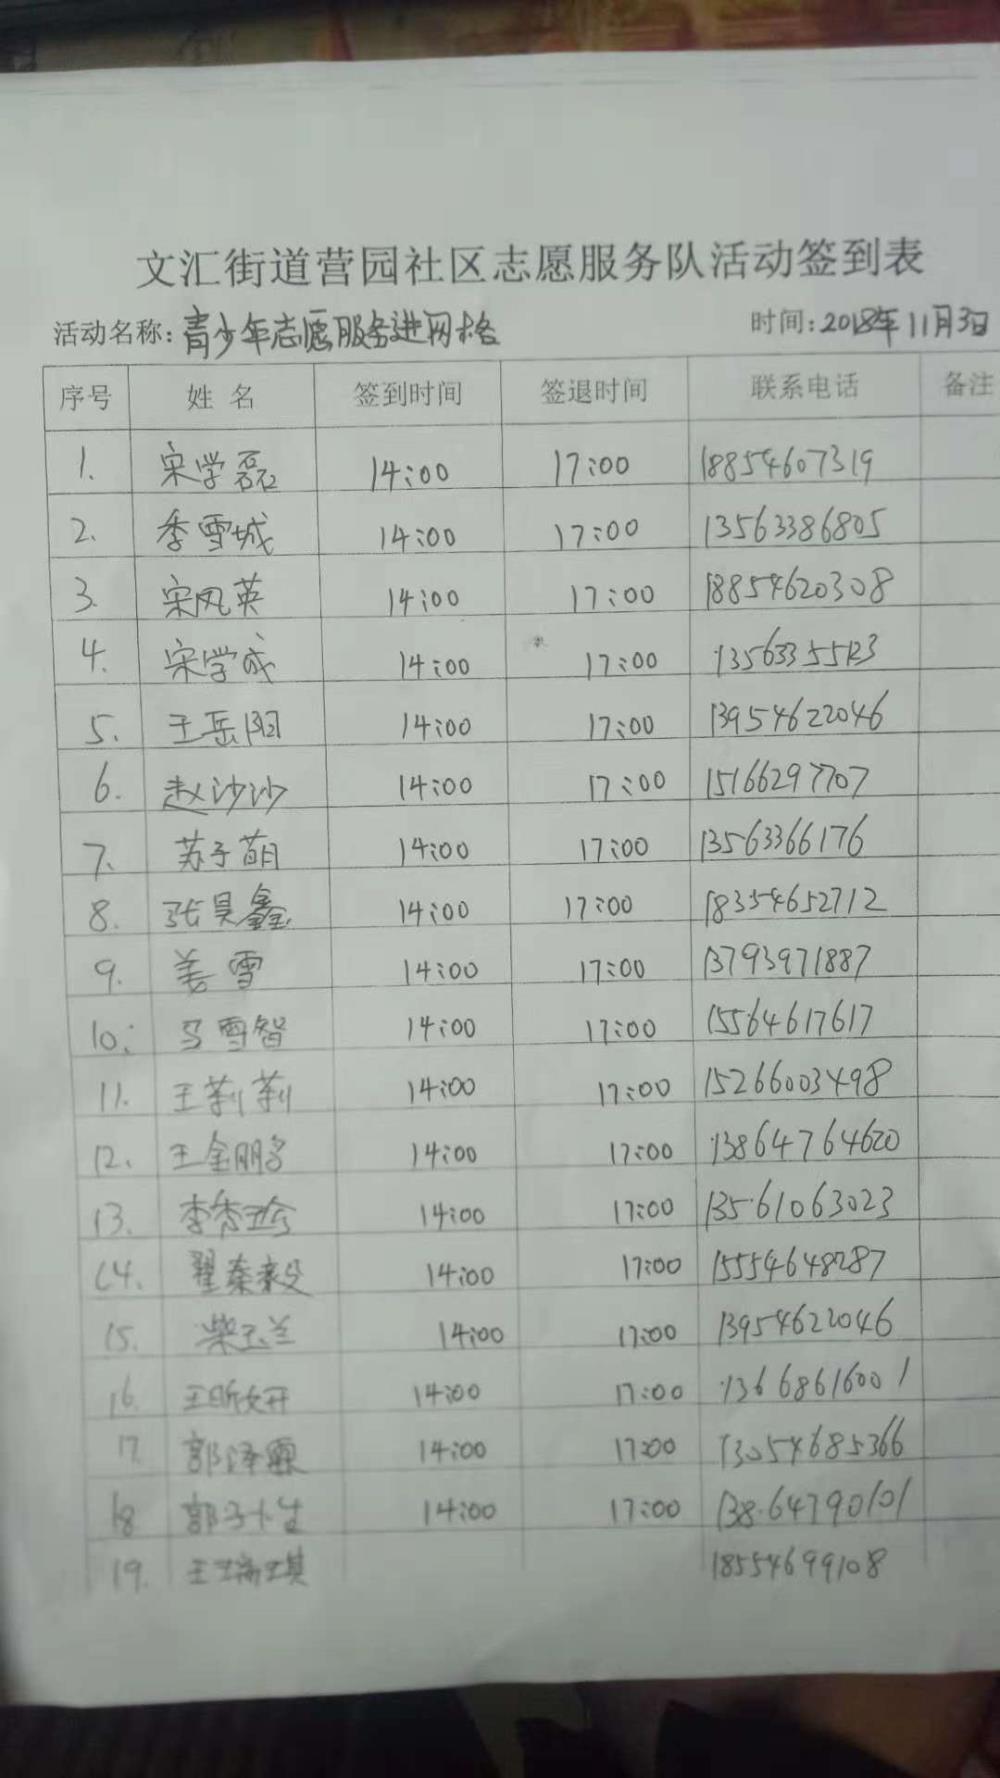 文汇街道营园社区志愿服务队活动签到表
活动名称:青少年志愿服务进网格 时间:2018年11月3日
序号 姓名 签到时间 签退时间 联系电话 备注
1. 宋学磊 14:00 17:00 18854607319
2. 季雪城 14:00 17:00 13563386805
3. 宋凤英 14:00 17:00 18854620308
4. 宋学成 14:00 17:00 13563355123
5. 王岳阳 14:00 17:00 13954622046
6. 赵沙沙 14:00 17:00 15166297707
7. 苏子萌 14:00 17:00 13563366176
8. 张昊鑫 14:00 17:00 18354652712
9. 姜雪 14:00 17:00 13793971887
10. 马雪智 14:00 17:00 15564617617
11. 王莉莉 14:00 17:00 15266003498
12. 王金鹏 14:00 17:00 13864764620
13. 李秀珍 14:00 17:00 13561063023
14. 翟秦毅 14:00 17:00 15554648287
15. 柴玉兰 14:00 17:00 13954622046
16. 王昕妍 14:00 17:00 13668616001
17. 郭泽霖 14:00 17:00 13054685366
18 郭子 14:00 17:00 13864790101
19. 王瑞琪 18554699108